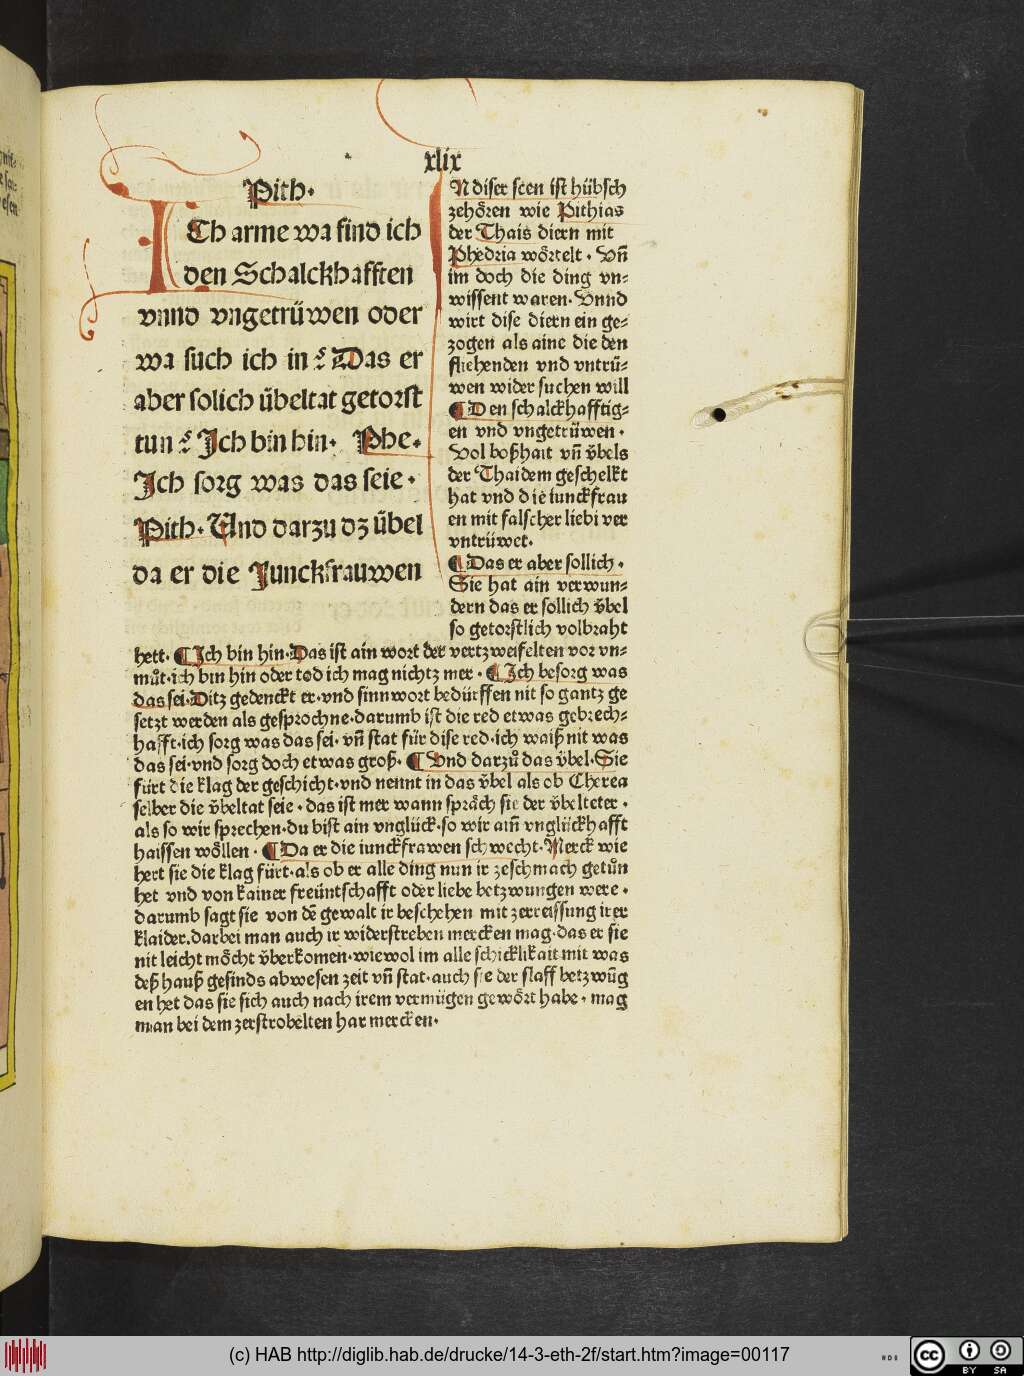 xlix
Pith.
ICh arme wa find ich
den Schalckhafften
vnnd vngetrüwen oder
wa such ich in? Das er
aber solich übeltat getorst
tun? Ich bin hin. Phe.
Ich sorg was das seie.
Pith. Und darzu dz übel
da er die Junckfrauwen
N diser scen ist hübsch
zehören wie Pithias
der Thais diern mit
Phedria wörtelt. Vn̄
im doch die ding vn-
wissent waren. Vnnd
wirt dise diern ein ge-
zogen als aine die den
fliehenden vnd vntrü-
wen wider suchen will
¶ Den schalckhafftig-
en vnd vngetrüwen.
Vol boßhait vn̄ v̈bels
der Thaidem geschelkt
hat vnd die iunckfrau
en mit falscher liebi ver
vntrüwet.
¶ Das er aber sollich.
Sie hat ain verwun-
dern das er sollich v̈bel
so getorstlich volbraht
hett. ¶ Ich bin hin. Das ist ain wort der vertzweifelten vor vn-
můt. ich bin hin oder tod ich mag nichtz mer. ¶ Ich besorg was
das sei. Ditz gedenckt er. vnd sinn wort bedürffen nit so gantz ge
setzt werden als gesprochne. darumb ist die red etwas gebrech-
hafft. ich sorg was das sei. vn̄ stat für dise red. ich waiß nit was
das sei. vnd sorg doch etwas groß. ¶ Vnd darzů das v̈bel. Sie
fürt die klag der geschicht. vnd nennt in das v̈bel als ob Cherea
selber die v̈beltat seie. das ist mer wann spräch sie der v̈belteter.
als so wir sprechen. du bist ain vnglück. so wir ain̄ vnglückhafft
haissen wöllen. ¶ Da er die iunckfrawen schwecht. Merck wie
hert sie die klag fürt. als ob er alle ding nun ir zeschmach getůn
het vnd von kainer freüntschafft oder liebe betzwungen were.
darumb sagt sie von dē gewalt ir beschehen mit zerreissung irer
klaider. darbei man auch ir widerstreben mercken mag. das er sie
nit leicht möcht v̈berkomen. wiewol im alle schicklikait mit was
deß hauß gesinds abwesen zeit vn̄ stat. auch sie der slaff betzwūg
en het das sie sich auch nach irem vermügen gewört habe. mag
man bei dem zerstrobelten har mercken.
(c) HAB http://diglib.hab.de/drucke/14-3-eth-2f/start.htm?image=00117
cc BY SA